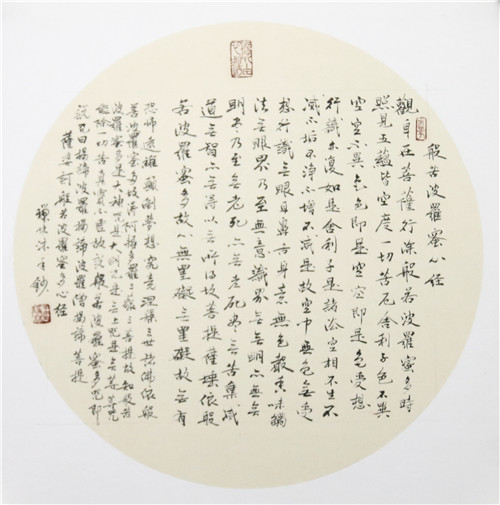 般若波羅蜜心经
觀自在菩薩行深般若波羅蜜多時
照見五蘊皆空度一切苦厄舍利子色不異
空空不異色色即是空空即是色受想
行識亦復如是舍利子是諸法空相不生不
滅不垢不淨不增不減是故空中無色无受
想行識无眼耳鼻舌身意無色聲香味觸
法无眼界乃至無意識界无无明亦無无
明盡乃至无老死亦无老死盡无苦集滅
道无智亦无得以无所得故菩提薩埵依般
若波羅蜜多故心無罣礙无罣礙故无有
恐怖遠離顛倒夢想究竟涅槃三世諸佛依般
若波羅蜜多故得阿耨多羅三藐三菩提故知般若
波羅蜜多是大神咒是大明咒是无上咒是无等等咒
能除一切苦真實不虛故說般若波羅蜜多咒即
說咒曰揭諦揭諦波羅揭諦波羅僧揭諦菩提
薩婆訶般若波羅蜜多心经
沐手鈔